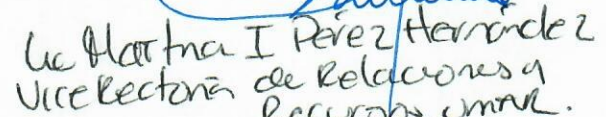 Lic Martha I Pérez Hernández
Vice Rectoría de Relaciones y
Recursos UMAR.